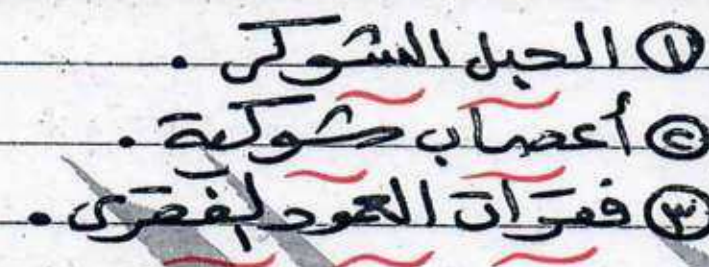 ① الحبل الشوكى .
② أعصاب شوكية .
③ فقرات العمود الفقرى .